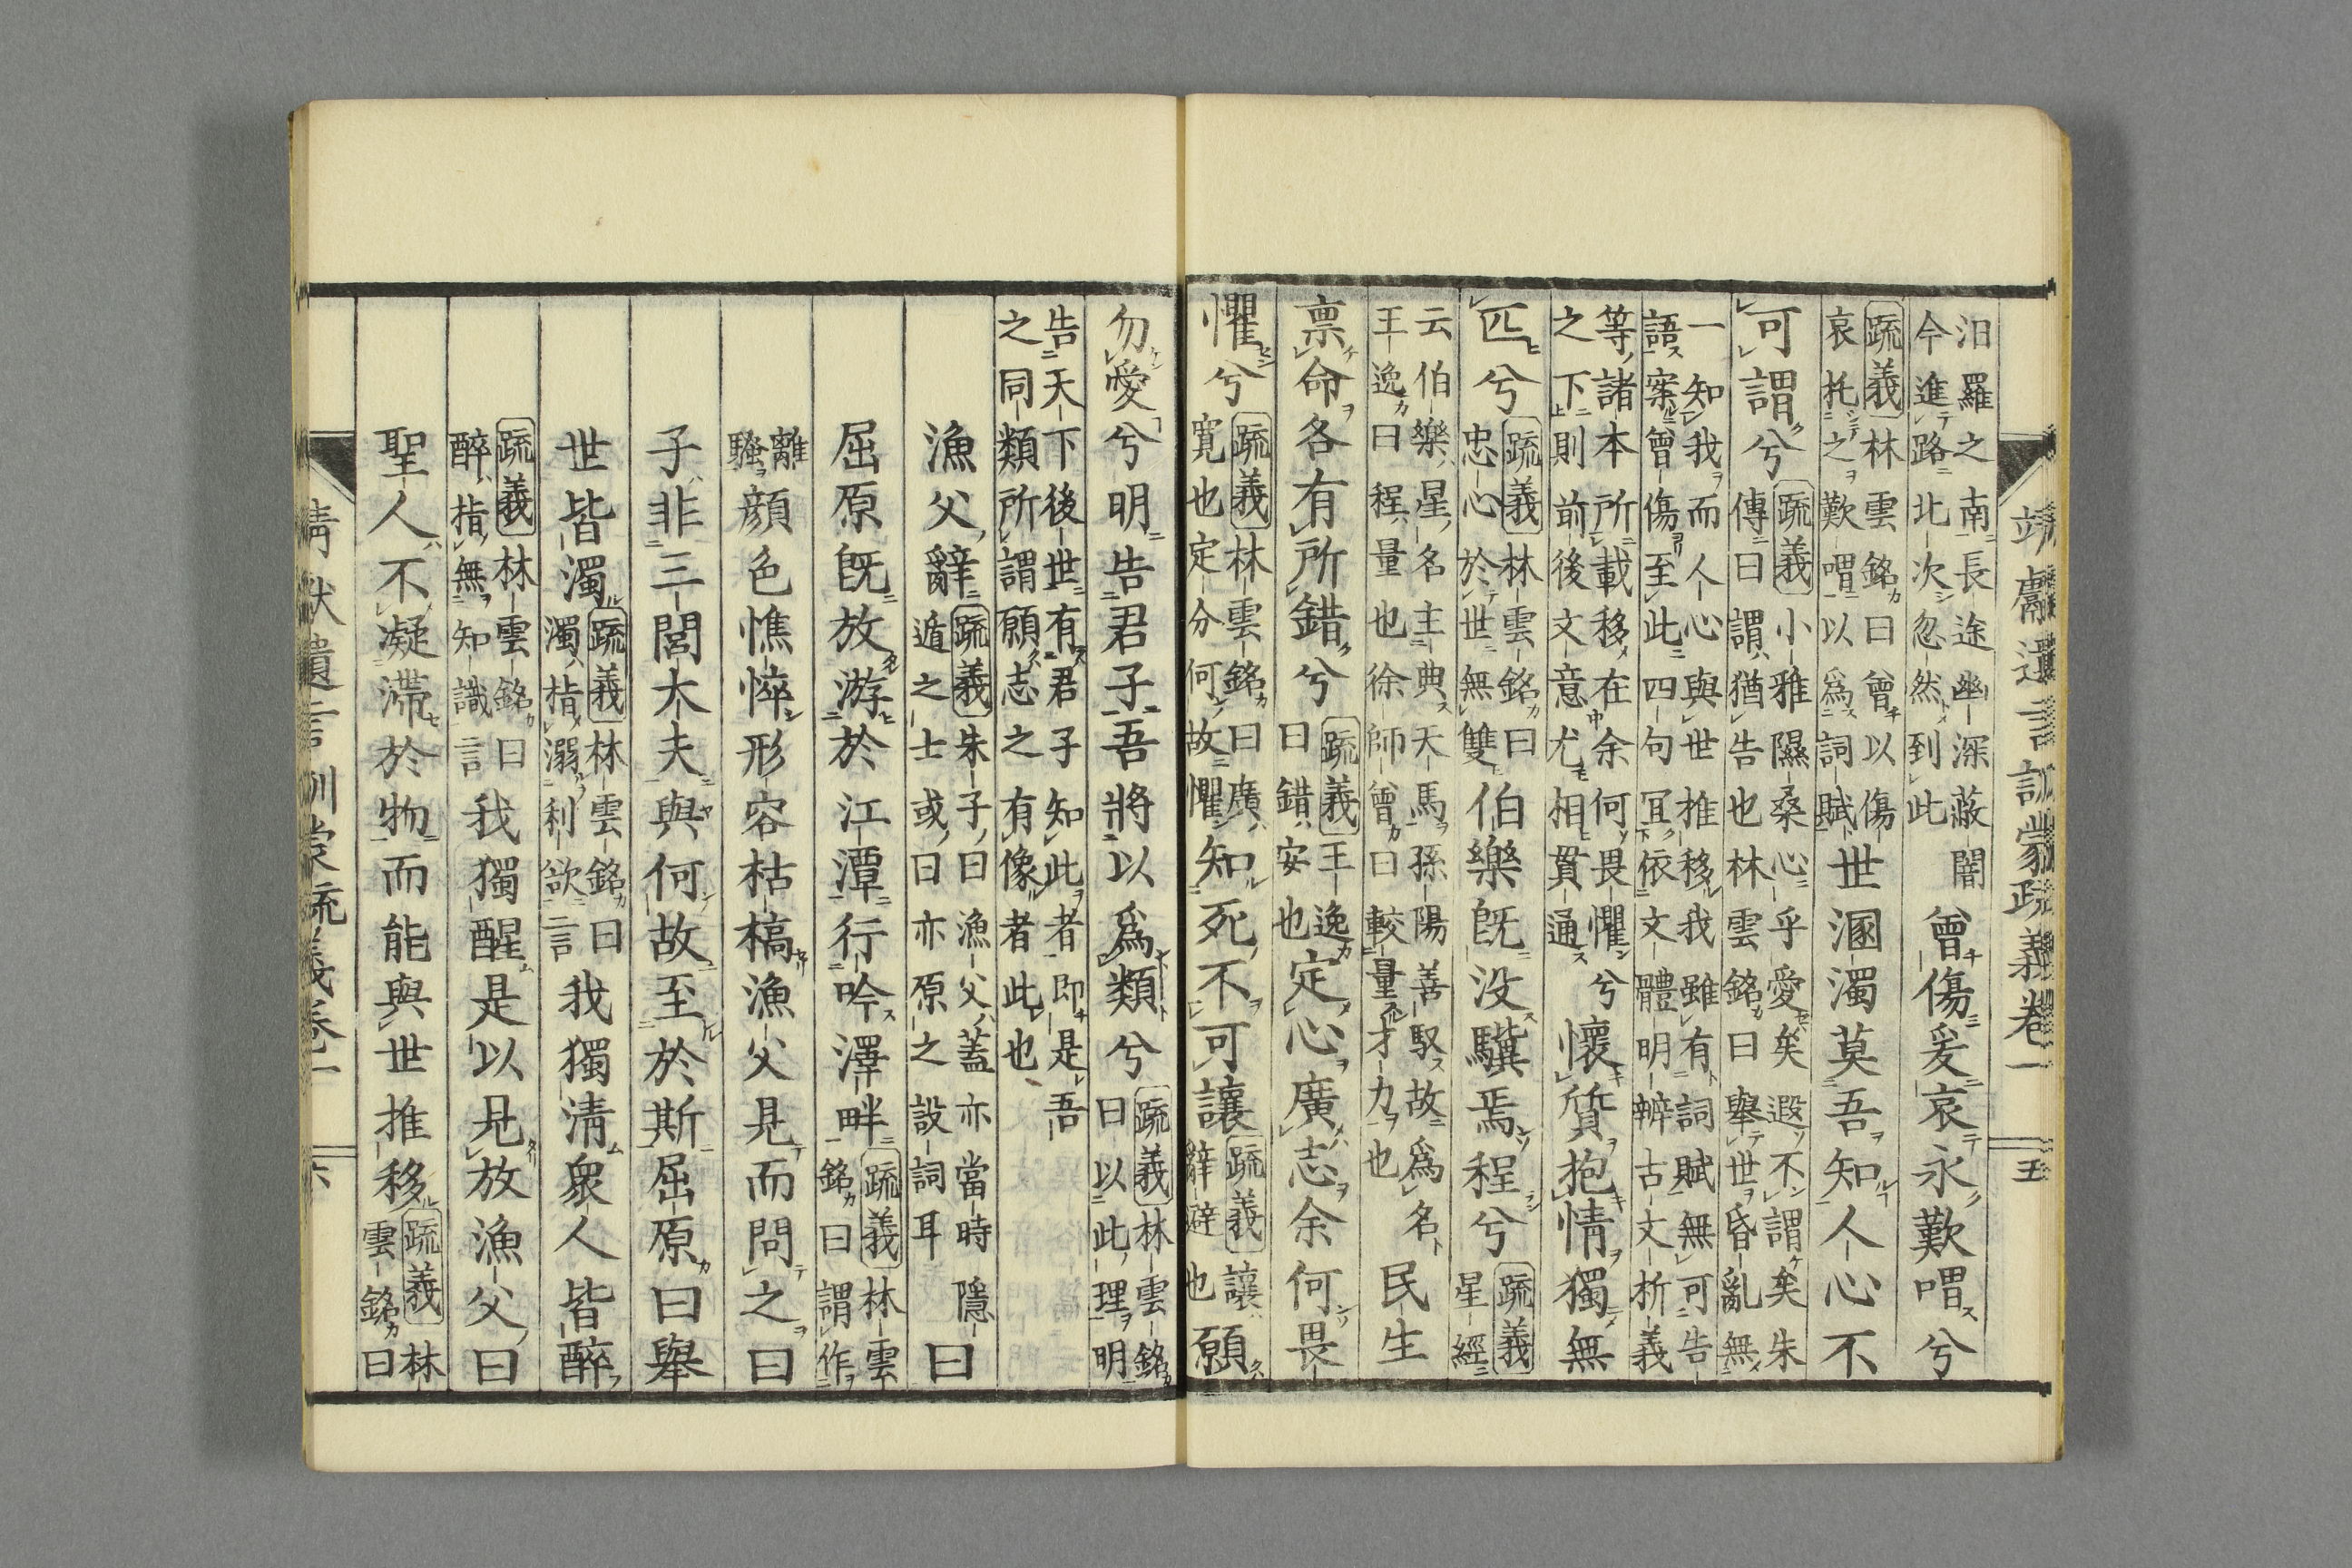 靖獻遺言訓蒙疏義卷一 五
汨羅之南長途幽深蔽闇
今進路北次忽然到此
曾傷爰哀永歎喟兮
疏義林雲銘曰曾以傷
哀托之歎喟以爲詞賦
世溷濁莫吾知人心不
可謂兮
疏義小雅隰桑心乎愛矣遐不謂矣朱
傳曰謂猶告也林雲銘曰舉世昏亂無
一知我而人心與世推移我雖有詞賦無可告
語案曾傷至此四句冝依文體明辨古文析義
等諸本所載移在余何畏懼兮
之下則前後文意尤相貫通
懷質抱情獨無
匹兮
疏義林雲銘曰
忠心於世無雙
伯樂旣没驥焉程兮
疏義
星經
云伯樂星名主典天馬孫陽善馭故爲名
王逸曰程量也徐師曾曰較量才力也
民生
禀命各有所錯兮
疏義王逸
曰錯安也
定心廣志余何畏
懼兮
疏義林雲銘曰廣
寛也定分何故懼
知死不可讓
疏義讓
辭避也
願
勿愛兮明告君子吾將以爲類兮
疏義林雲銘
曰以此理明
告天下後世有君子知此者即是吾
之同類所謂願志之有像者此也
漁父辭
疏義朱子曰漁父蓋亦當時隱
遁之士或曰亦原之設詞耳
曰
屈原旣放游於江潭行吟澤畔
疏義林雲
銘曰謂作
離
騷
顔色憔悴形容枯槁漁父見而問之曰
子非三閭大夫與何故至於斯屈原曰舉
世皆濁
疏義林雲銘曰
濁指溺利欲言
我獨清衆人皆醉
疏義林雲銘曰
醉指無知識言
我獨醒是以見放漁父曰
聖人不凝滯於物而能與世推移
疏義林
雲銘曰
靖獻遺言訓蒙疏義卷一 六